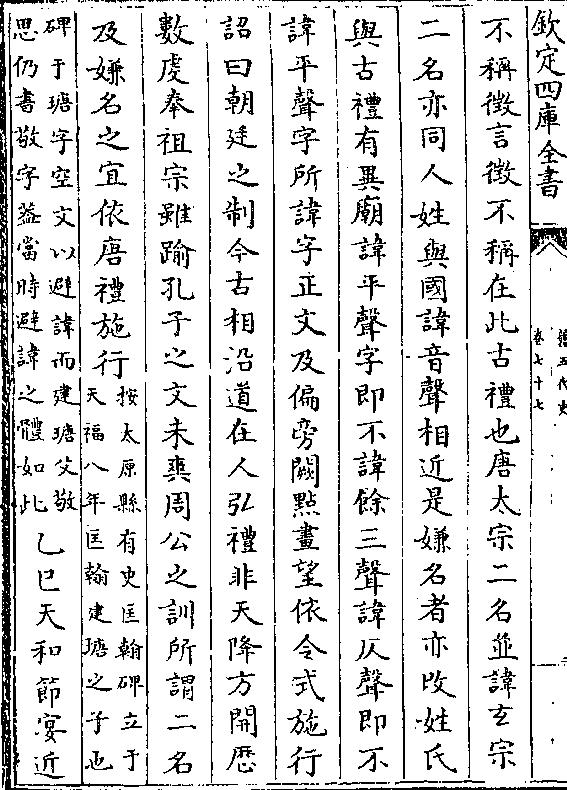 欽定四庫全書
舊五代史
卷七十七
不稱徵言徵不稱在此古禮也唐太宗二名並諱玄宗
二名亦同人姓與國諱音聲相近是嫌名者亦改姓氏
與古禮有異廟諱平聲字即不諱餘三聲諱仄聲即不
諱平聲字所諱字正文及偏旁闕點畫望依令式施行
詔曰朝廷之制今古相沿道在人弘禮非天降方開厯
數虔奉祖宗雖踰孔子之文未爽周公之訓所謂二名
及嫌名之宜依唐禮施行按太原縣有史匡翰碑立于
天福八年匡翰建瑭之子也
碑于瑭字空文以避諱而建瑭父敬
思仍書敬字蓋當時避諱之體如此乙巳天和節宴近